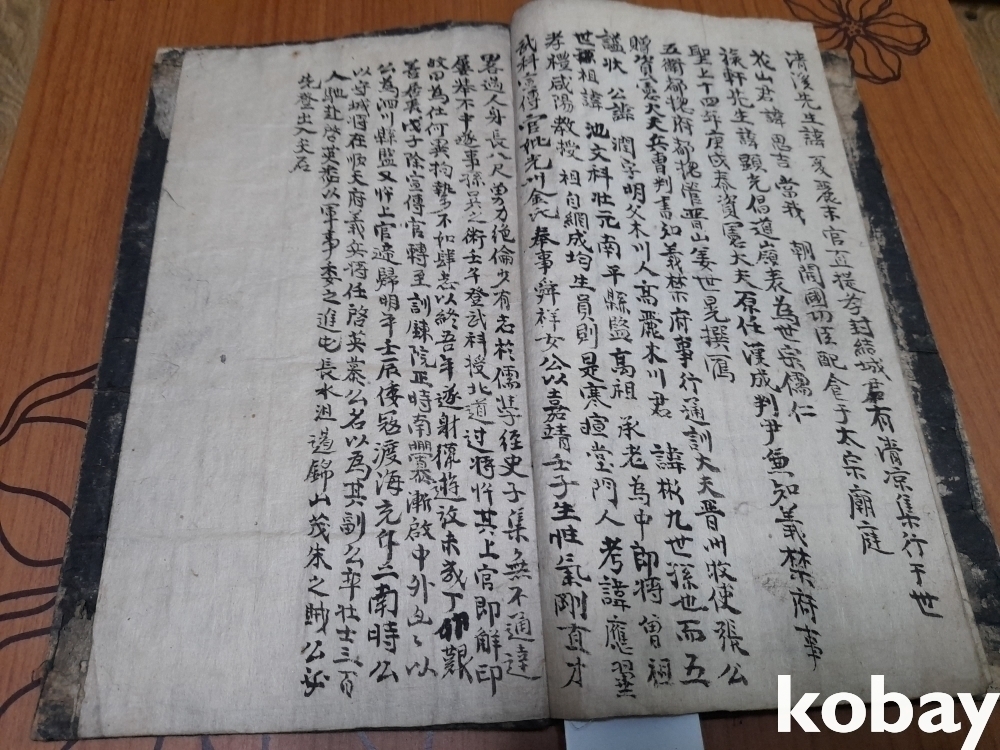 清溪先生諱 夏麗末官直提學封結城君有清凉集行于世
花山君諱 思吉 當我 朝開國功臣配食于太宗廟庭
旅軒先生諱顯光倡道嶺表為世宗儒仁
聖上十四年庚戌春資憲大夫原任漢成判尹兼知義禁府事
五衛都摠府都摠管晋山姜世晃撰焉
贈資憲大夫兵曹判書知義禁府事行通訓大夫晋州牧使張公
謚狀 公諱 潤字明父木川人高麗木川君 諱彬九世孫也而五
世祖諱 池文科壯元南平縣監高祖 承老為中郎將曾祖
孝禮咸陽教授 祖自綱成均生員則是寒暄堂門人 考諱應翼
武科宣傳官妣光州金氏奉事舜祥女公以嘉靖壬子生性氣剛直才
畧過人身長八尺勇力絶倫少有志於儒學經史子集無不通達
屢舉不中遂事孫吳之術壬午登武科授北道过將忤其上官即解印
歸田為仕何羈拘摯不如肆志以終吾年遂射獵遊放未幾丁 艱
善居喪戊子除宣傳官轉至訓鍊院正時南釁漸啟中外 以
公為泗川縣監又忤上官遞歸明年壬辰倭冦渡海充斥二南時公
以守城將在順天府義兵將任啓英慕公名以為其副公率壯士三百
人馳赴啓英悉以軍事委之進屯長水沮遏錦山茂朱之賊公
先登出入矢石
kobay